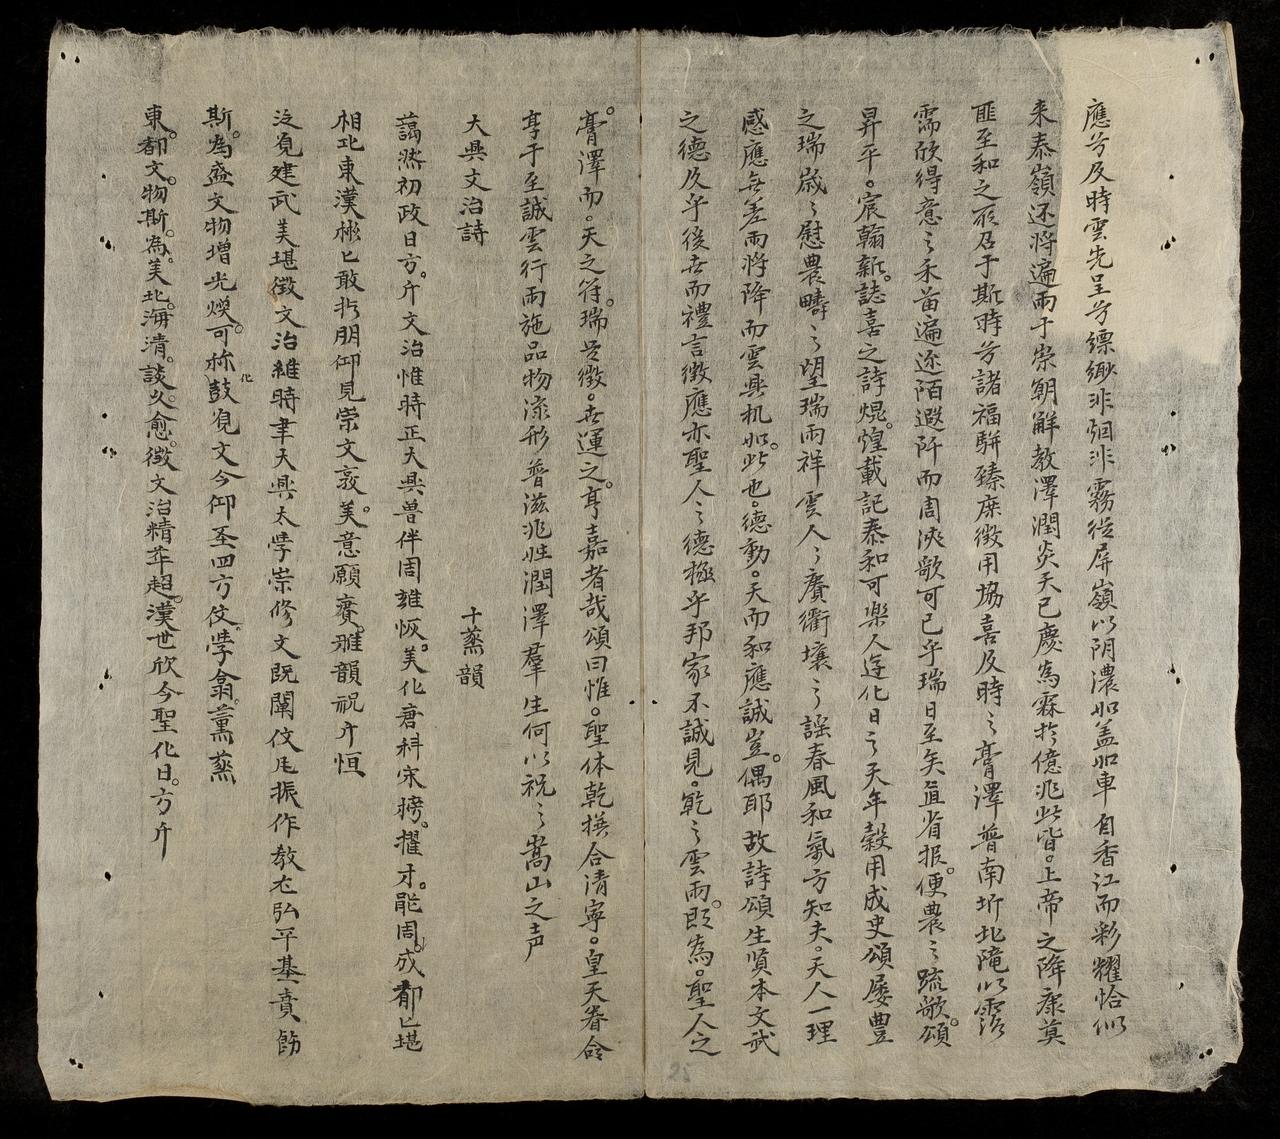 應兮及時雲先呈兮縹緲非烟非霧從屏嶺以阴濃如盖如車自香江而彩耀恰似
来泰嶺还將遍雨于崇朝解教澤潤炎天已慶為霖於億兆此皆上帝之降康莫
匪至和之所召于斯時兮諸福駢臻庶徵用協喜及時之膏澤普南圻北隆以霑
霈欣得意之禾苗遍迩陌遐阡而周浹歌可已乎瑞日至矣直省报便農之疏歌頌
昇平宸翰新誌喜之詩焜煌載記泰和可樂人逰化日之天年穀用成史頌屡豊
之瑞歲々慰農疇之望瑞雨祥雲人々賡衢壤之謡春風和氣方知夫天人一理
感應無差雨將降而雲興机如此也德動天而和應誠豈偶耶故詩頌生贤本文武
之德及乎後世而禮言徵應亦聖人之德極乎邦家不誠見乾之雲雨既為聖人之
膏澤而天之符瑞足徵世運之亨嘉者哉頌曰惟聖体乾撰合清寧皇天眷命
享于至誠雲行雨施品物流形普滋兆姓潤澤羣生何以祝之嵩山之声
大興文治詩 十蒸韻
藹然初政日方升文治惟時正大興兽伴周雝恢美化唐科宋榜擢才能周成郁匕堪
相比東漢彬匕敢抗朋仰見崇文敦美意願賡雅韻祝升恒
泛覓建武美堪徵文治維時聿大興太斈崇修文既闡伎凥振作教尤弘平基賁飭
斯為盛文物增光煥可称鼓化覓文今仰至四方伎斈翕薰蒸
東都文物斯為美北海清談久愈徵文治精華超漢世欣今聖化日方升
25